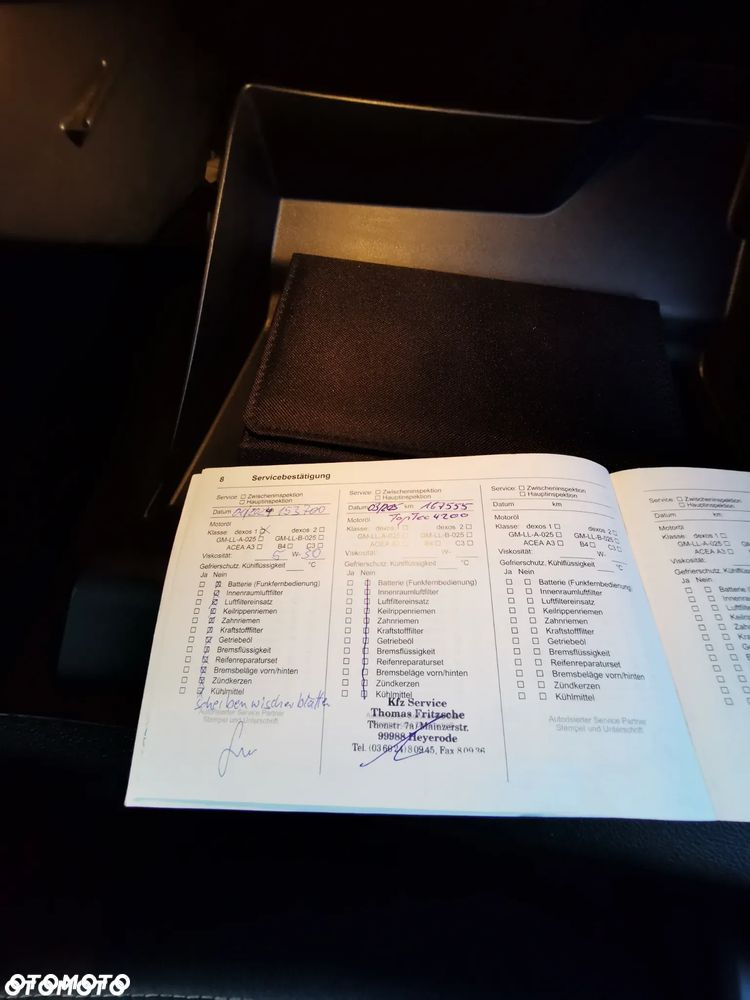 8 Servicebestätigung
Service: □ Zwischeninspektion
□ Hauptinspektion
Datum 153700
Motoröl
Klasse: dexos 1 ☒ dexos 2 □
GM-LL-A-025 □ GM-LL-B-025 □
ACEA A3 □ B4 □ C3 □
Viskosität: 5 W- 30
Gefrierschutz, Kühlflüssigkeit ____ °C
Ja Nein
□ ☒ Batterie (Funkfernbedienung)
□ ☒ Innenraumluftfilter
□ ☒ Luftfiltereinsatz
□ ☒ Keilrippenriemen
□ ☒ Zahnriemen
□ ☒ Kraftstofffilter
□ ☒ Getriebeöl
□ ☒ Bremsflüssigkeit
□ ☒ Reifenreparaturset
□ ☒ Bremsbeläge vorn/hinten
□ ☒ Zündkerzen
□ ☒ Kühlmittel
scheibenwischerblätter
Autorisierter Service Partner
Stempel und Unterschrift
Service: □ Zwischeninspektion
□ Hauptinspektion
Datum km 167555
Motoröl TopTec 4200
Klasse: dexos 1 □ dexos 2 □
GM-LL-A-025 □ GM-LL-B-025 □
ACEA A3 □ B4 □ C3 □
Viskosität: W-
Gefrierschutz, Kühlflüssigkeit ____ °C
Ja Nein
□ □ Batterie (Funkfernbedienung)
□ □ Innenraumluftfilter
□ □ Luftfiltereinsatz
□ □ Keilrippenriemen
□ □ Zahnriemen
□ □ Kraftstofffilter
□ □ Getriebeöl
□ □ Bremsflüssigkeit
□ □ Reifenreparaturset
□ □ Bremsbeläge vorn/hinten
□ □ Zündkerzen
□ □ Kühlmittel
Kfz Service
Thomas Fritzsche
Thonstr. 7a/Mainzerstr.
99988 Heyerode
Tel. (03 60 24) 8 09 45, Fax 8 09 36
Service: □ Zwischeninspektion
□ Hauptinspektion
Datum km
Motoröl
Klasse: dexos 1 □ dexos 2 □
GM-LL-A-025 □ GM-LL-B-025 □
ACEA A3 □ B4 □ C3 □
Viskosität: W-
Gefrierschutz, Kühlflüssigkeit ____ °C
Ja Nein
□ □ Batterie (Funkfernbedienung)
□ □ Innenraumluftfilter
□ □ Luftfiltereinsatz
□ □ Keilrippenriemen
□ □ Zahnriemen
□ □ Kraftstofffilter
□ □ Getriebeöl
□ □ Bremsflüssigkeit
□ □ Reifenreparaturset
□ □ Bremsbeläge vorn/hinten
□ □ Zündkerzen
□ □ Kühlmittel
Autorisierter Service Partner
Stempel und Unterschrift
Service: □ Zwischeninspektion
□ Hauptinspektion
Datum km
Motoröl
Klasse: dexos 1 □
GM-LL-A-025 □
ACEA A3 □
Viskosität:
Gefrierschutz, Kühlflüssig
Ja Nein
OTOMOTO